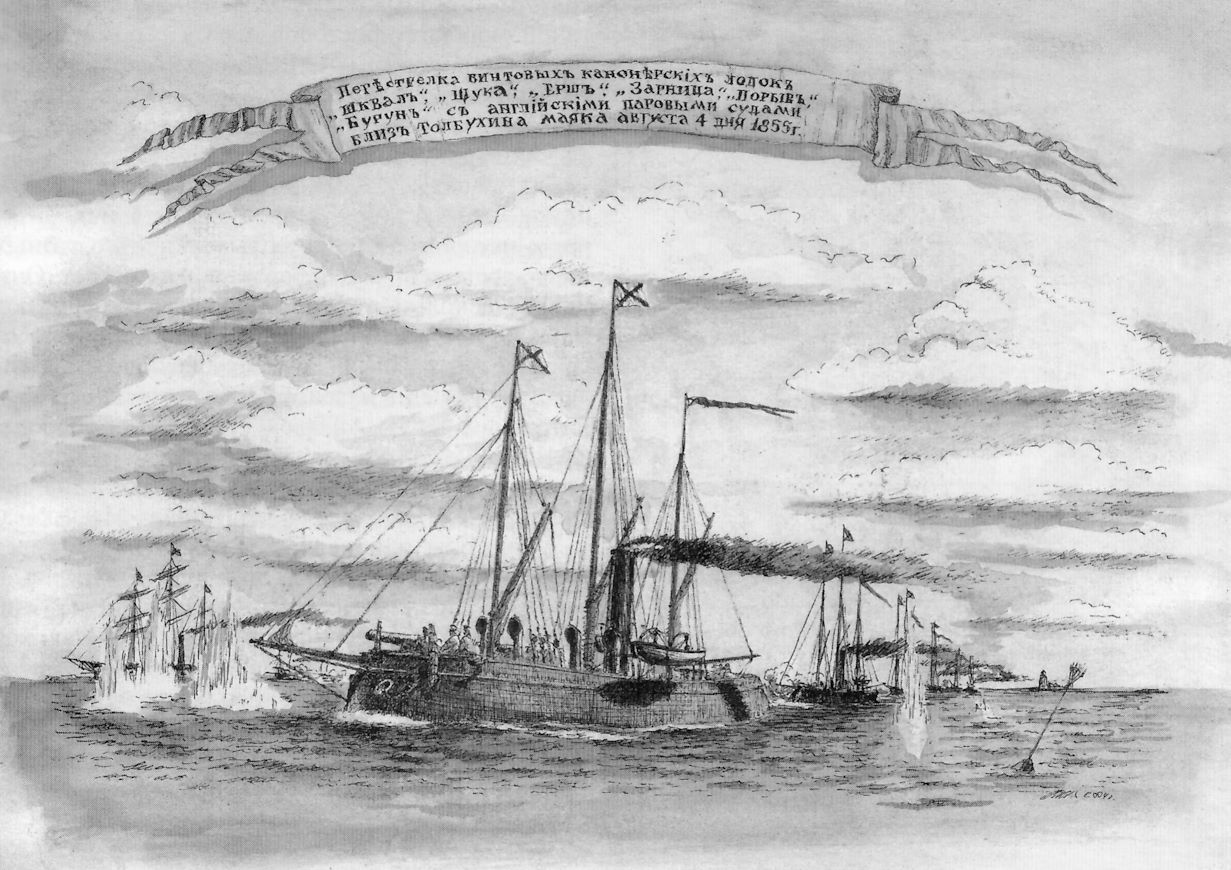 Перѣстрелка винтовыхъ канонѣрскiхъ лодок
„Шквалъ“, „Щука“, „Ершъ“, „Зарница“, „Порывъ“,
„Бурунъ“ съ англiйскiми паровыми судами
близъ Толбухина маяка августа 4 дня 1855г.